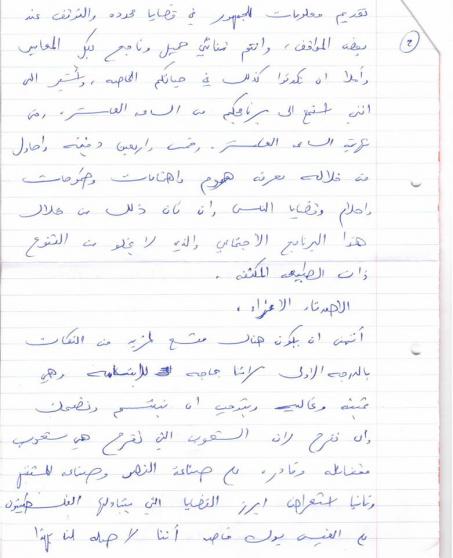 تقديم معلومات للجمهور في قضايا محدده والتوقف عند
بعض المواقف، وانتم ثنائي جميل وناجح بكل المعايير
وآملا ان تكونوا كذلك في حياتكم الخاصه، وأشير الى
انني استمع الى برنامجكم من الساعه العاشره، وحتى
نهاية الساعه العاشره وخمس واربعين دقيقه واحاول
من خلاله معرفة هموم واهتمامات وطموحات
واحلام وقضايا الناس وان كان ذلك من خلال
هذا البرنامج الاجتماعي والذي لا يخلو من التنوع
ذات الطبيعه
الاصدقاء الاعزاء،
أتمنى ان يكون هناك متسع لمزيد من النكات
بالدرجه الاولى لاننا بحاجه للابتسامه وهي
ثمينه وغاليه ويتوجب ان نبتسم ونضحك
وان نفرح لان الشعوب التي تفرح هي شعوب
وقادره على صناعة النصر
وثانيا استعراض ابرز القضايا التي يتداولها الفلسطينيون
على الفيس بوك خاصه أننا لا